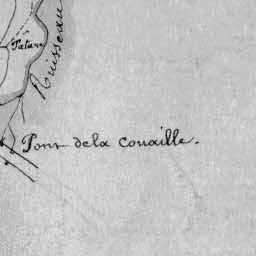 Pature
Ruisseau
Pont dela couaille.